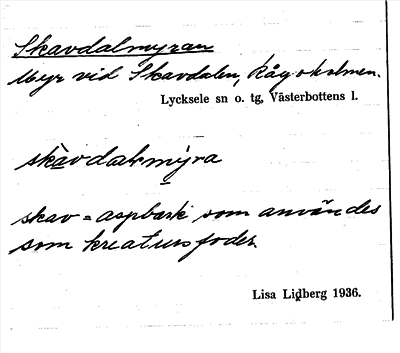 Skavdalmyran
Myr vid Skavdalen, Rågoholmen.
Lycksele sn o. tg, Västerbottens l.
skàvdalmýra
skav = aspbark som användes
som kreatursfoder.
Lisa Lidberg 1936.